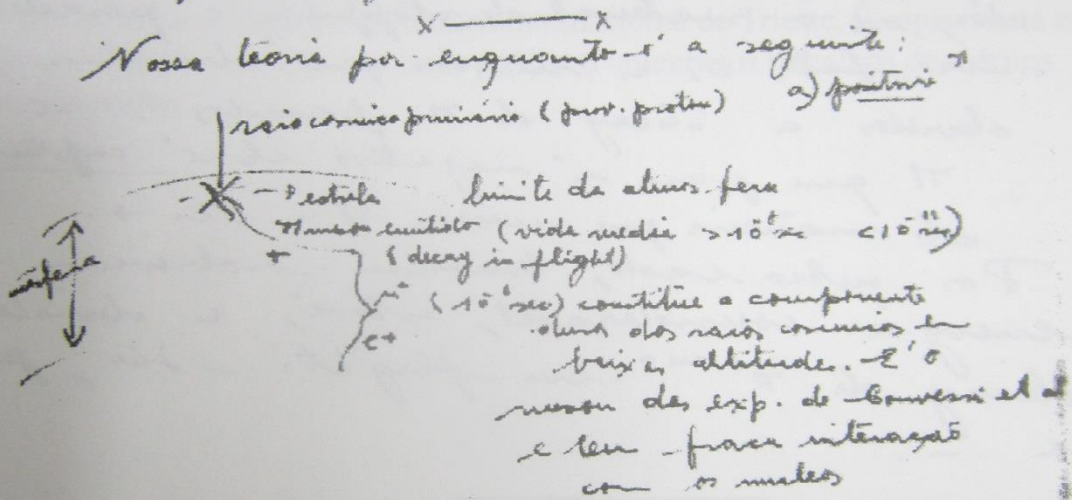 x ——— x
Nossa teoria por enquanto é a seguinte:
a) positivo
raio cosmico primário (prov. proton)
→ estrela limite da atmosfera
π meson emitido (vida media > 10⁻⁸ sec < 10⁻¹¹ sec)
+ (decay in flight)
μ+ (10⁻⁶ sec) constitue a componente
e+ dura dos raios cosmicos em
baixas altitude. E' o
meson das exp. de Conversi et al
e tem fraca interação
com os nucleos